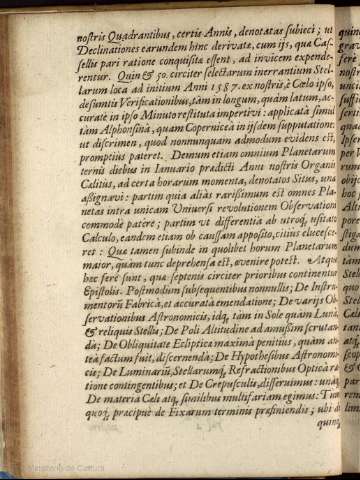 nostris Quadrantibus, certis Annis, denotatas subieci; ut
Declinationes earundem hinc derivatæ, cum ijs, quæ Cas-
sellis pari ratione conquisitæ essent, ad invicem expende-
rentur. Quin & 50. circiter selectarum inerrantium Stel-
larum loca ad initium Anni 1587. ex nostris, è Cælo ipso,
desumtis Verificationibus, tàm in longum, quàm latum, ac-
curatè in ipso Minuto restituta impertivi: applicatâ simul
tàm Alphonsinâ, quàm Copernicea in ijsdem supputatione:
ut discrimen, quod nonnunquam admodum evidens est,
promptius pateret. Demum etiam omnium Planetarum
ternis diebus in Ianuario prædicti Anni nostris Organis
Cælitus, ad certa horarum momenta, denotatos Situs, unà
assignavi: partim quia aliàs rarissimum est omnes Pla-
netas intra unicam Universi revolutionem Observationi
commodè patere; partim ut differentia ab utroq; usitato
Calculo, eandem etiam ob caussam apposito, citius elucesce-
ret: Quæ tamen subinde in quolibet horum Planetarum
maior, quàm tunc deprehensa est, avenire potest. Atque
hæc ferè sunt, quæ septenis circiter prioribus continentur
Epistolis. Postmodum subsequentibus nonnullis; De Instru-
mentorũ Fabricâ, et accuratâ emendatione; De varijs Ob-
servationibus Astronomicis, idq; tàm in Sole quàm Lunâ,
& reliquis Stellis; De Poli Altitudine ad amussim scrutan-
dâ; De Obliquitate Eclipticæ maximâ penitius, quàm an-
teà factum fuit, discernendâ; De Hypothesibus Astronomi-
cis; De Luminariũ, Stellarumq; Refractionibus Opticâ ra-
tione contingentibus; et De Crepusculis, disseruimus: unaq;
De materia Cæli atq; similibus multifariam egimus: Tum
quoq; præcipuè de Fixarum terminis præfiniendis; ubi di-
quinq;
Ministerio de Cultura